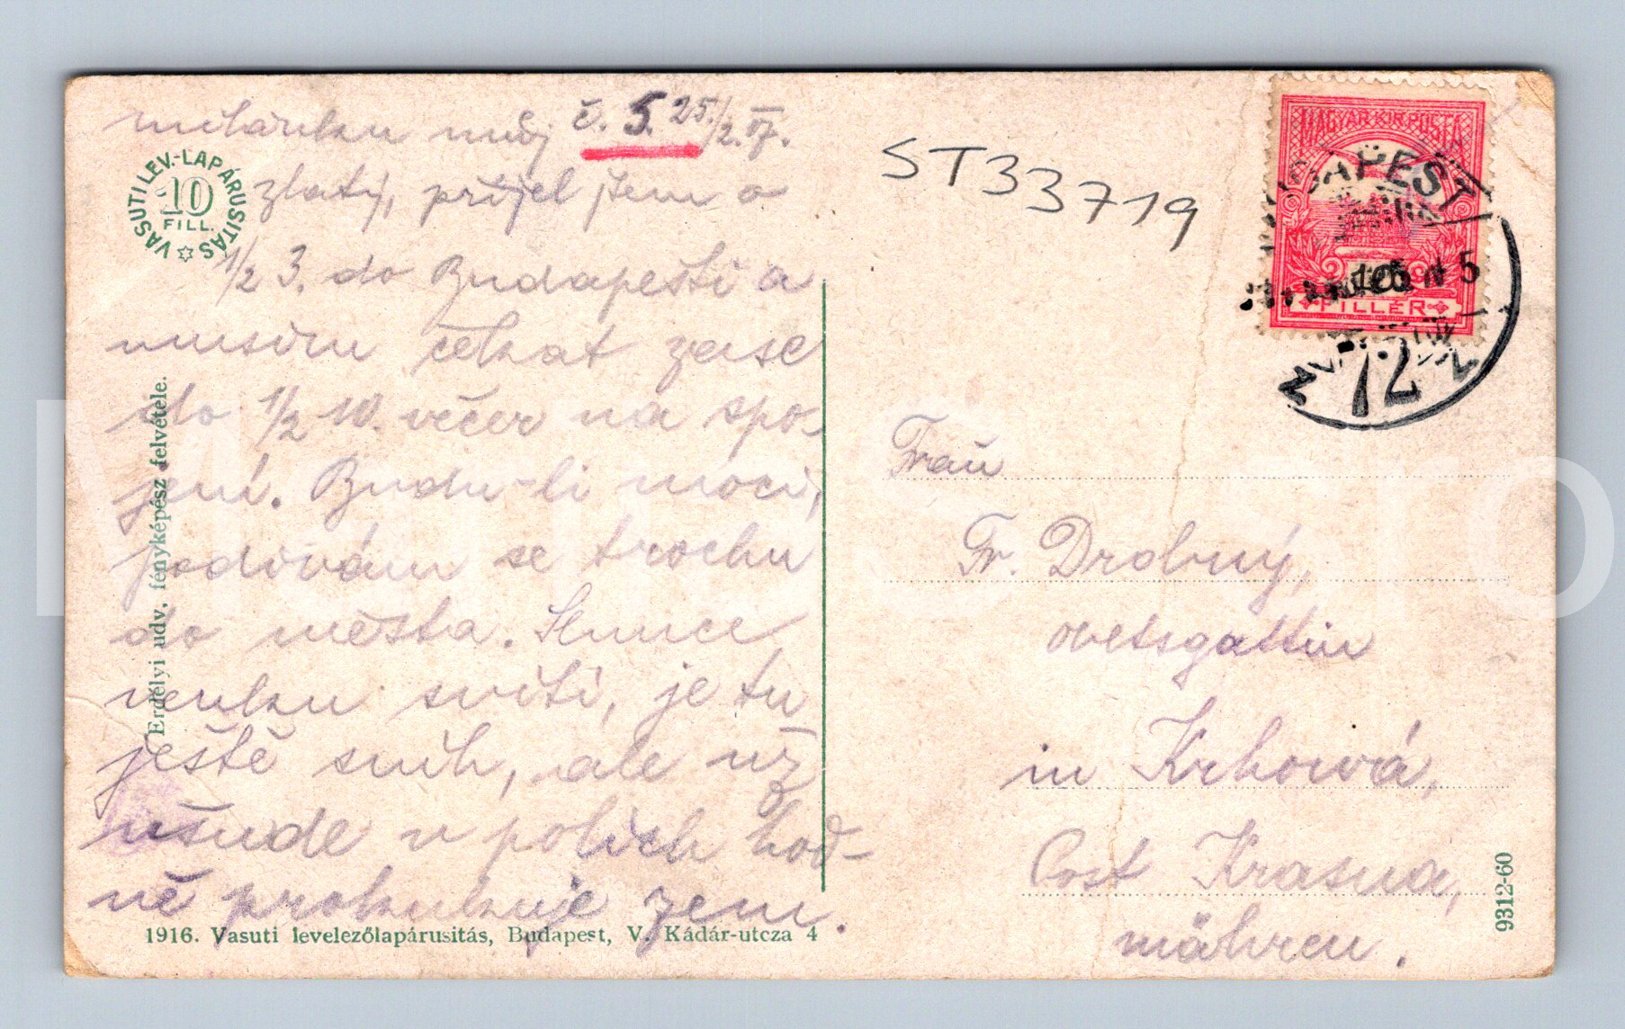 miláčku můj č. 5. 25./2. 17.
zlatý, přijel jsem o
1/2 3. do Budapešti a
musím čekat zase
do 1/2 10. večer na spo-
jení. Budu-li moci,
podívám se trochu
do města. Slunce
venku svítí, je tu
ještě sníh, ale už
všude v polích hod-
ně prokukuje zem.
VASUTI LEV.-LAPÁRUSITÁS
10
FILL.
Erdélyi udv. fényképész felvétele.
1916. Vasuti levelezőlapárusitás, Budapest, V. Kádár-utcza 4
ST33719
MAGYAR KIR. POSTA
FILLÉR
BUDAPEST
72
Frau
Fr. Drobný,
in Krhowá,
Post Krasna,
mähren.
9312-60